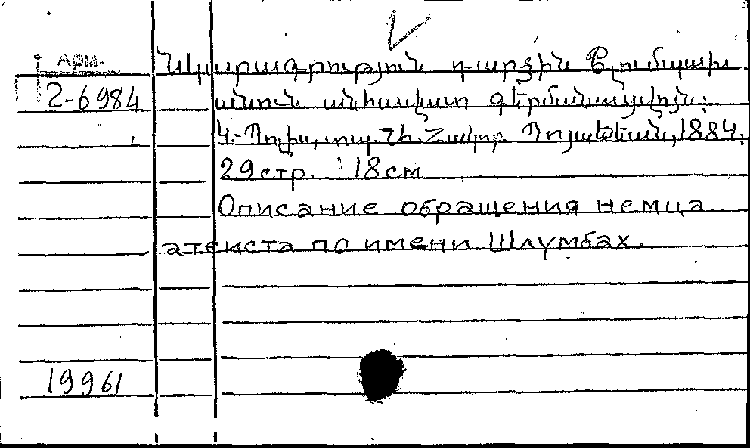 АРМ.
2-6984
Նկարագրություն դարձին Շլումպախ
անուն անհաւատ գերմանացւոյն:
Կ.Պոլիս, տպ. Յակոբ Պոյաճեան, 1884.
29стр. 18см
Описание обращения немца
атеиста по имени Шлумбах.
19961